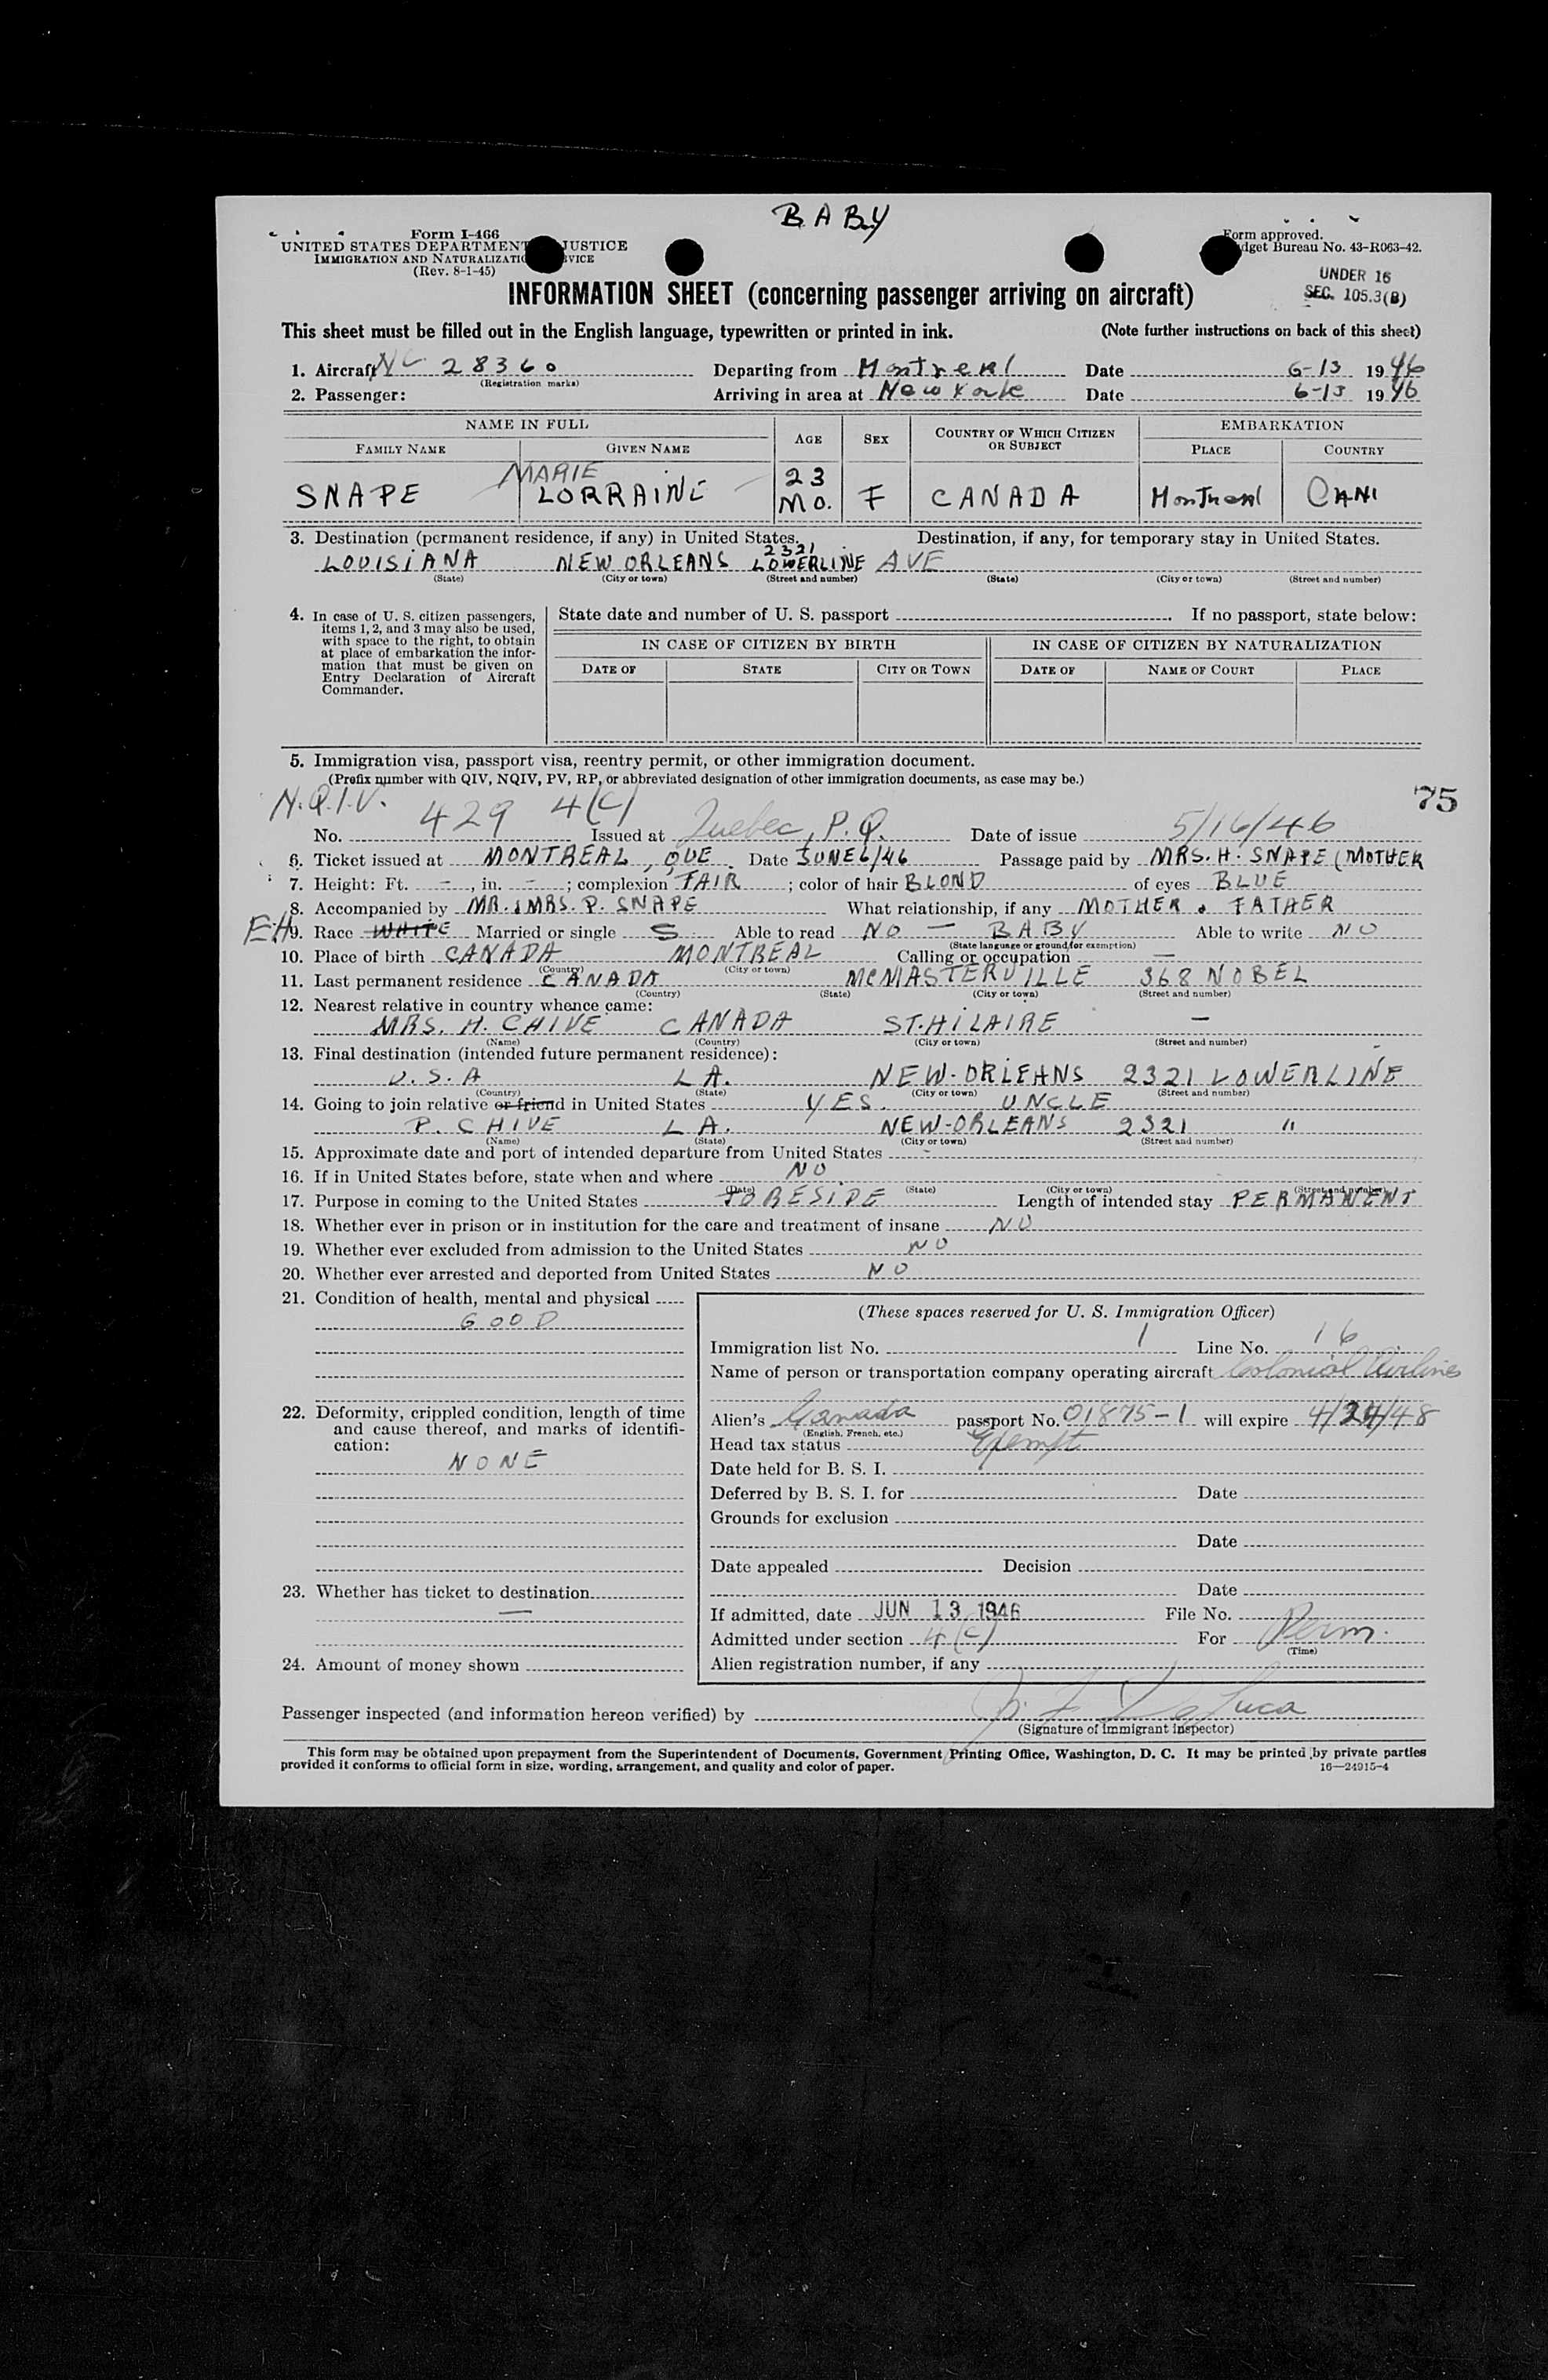 BABY
Form I-466
UNITED STATES DEPARTMENT JUSTICE
IMMIGRATION AND NATURALIZATION SERVICE
(Rev. 8-1-45)
Form approved.
Budget Bureau No. 43-R063-42.
UNDER 16
SEC. 105.3(B)
INFORMATION SHEET (concerning passenger arriving on aircraft)
This sheet must be filled out in the English language, typewritten or printed in ink. (Note further instructions on back of this sheet)
1. Aircraft NC 28360 Departing from Montreal Date 6-13 1946
(Registration marks)
2. Passenger: Arriving in area at New York Date 6-13 1946
NAME IN FULL AGE SEX COUNTRY OF WHICH CITIZEN OR SUBJECT EMBARKATION
FAMILY NAME GIVEN NAME PLACE COUNTRY
MARIE 23
SNAPE LORRAINE MO. F CANADA Montreal CAN
3. Destination (permanent residence, if any) in United States. Destination, if any, for temporary stay in United States.
2321
LOUISIANA NEW ORLEANS LOWERLINE AVE
(State) (City or town) (Street and number) (State) (City or town) (Street and number)
4. In case of U. S. citizen passengers, items 1, 2, and 3 may also be used, with space to the right, to obtain at place of embarkation the information that must be given on Entry Declaration of Aircraft Commander.
State date and number of U. S. passport. If no passport, state below:
IN CASE OF CITIZEN BY BIRTH IN CASE OF CITIZEN BY NATURALIZATION
DATE OF STATE CITY OR TOWN DATE OF NAME OF COURT PLACE
5. Immigration visa, passport visa, reentry permit, or other immigration document.
(Prefix number with QIV, NQIV, PV, RP, or abbreviated designation of other immigration documents, as case may be.)
75
N.Q.I.V.
No. 429 4(C) Issued at Quebec, P.Q. Date of issue 5/16/46
6. Ticket issued at MONTREAL, QUE Date JUNE 6/46 Passage paid by MRS. H. SNAPE (MOTHER
7. Height: Ft. -, in. -; complexion FAIR; color of hair BLOND of eyes BLUE
8. Accompanied by MR. & MRS. P. SNAPE What relationship, if any MOTHER & FATHER
9. Race WHITE Married or single S Able to read NO - BABY Able to write NO
(State language or ground for exemption)
10. Place of birth CANADA MONTREAL Calling or occupation —
(Country) (City or town)
11. Last permanent residence CANADA McMASTERVILLE 368 NOBEL
(Country) (State) (City or town) (Street and number)
12. Nearest relative in country whence came:
MRS. H. CHIVE CANADA ST. HILAIRE —
(Name) (Country) (City or town) (Street and number)
13. Final destination (intended future permanent residence):
U.S.A LA. NEW-ORLEANS 2321 LOWERLINE
(Country) (State) (City or town) (Street and number)
14. Going to join relative or friend in United States YES. UNCLE
P. CHIVE LA. NEW-ORLEANS 2321 "
(Name) (State) (City or town) (Street and number)
15. Approximate date and port of intended departure from United States -
16. If in United States before, state when and where NO
(Date) (State) (City or town) (Street and number)
17. Purpose in coming to the United States TO RESIDE Length of intended stay PERMANENT
18. Whether ever in prison or in institution for the care and treatment of insane NO
19. Whether ever excluded from admission to the United States NO
20. Whether ever arrested and deported from United States NO
21. Condition of health, mental and physical
GOOD
22. Deformity, crippled condition, length of time and cause thereof, and marks of identification:
NONE
23. Whether has ticket to destination
—
24. Amount of money shown
(These spaces reserved for U. S. Immigration Officer)
Immigration list No. 1 Line No. 16
Name of person or transportation company operating aircraft Colonial Airlines
Alien's Canada passport No. 01875-1 will expire 4/24/48
(English, French, etc.)
Head tax status Exempt
Date held for B. S. I.
Deferred by B. S. I. for Date
Grounds for exclusion
Date
Date appealed Decision
Date
If admitted, date JUN 13 1946 File No.
Admitted under section 4(c) For Perm.
(Time)
Alien registration number, if any
Passenger inspected (and information hereon verified) by De Luca
(Signature of immigrant inspector)
This form may be obtained upon prepayment from the Superintendent of Documents, Government Printing Office, Washington, D. C. It may be printed by private parties
provided it conforms to official form in size, wording, arrangement, and quality and color of paper. 16—24915-4